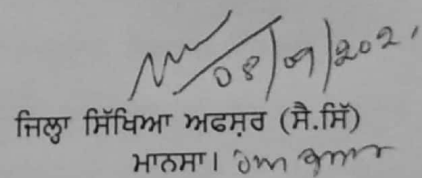 08/09/202
ਜਿਲ੍ਹਾ ਸਿੱਖਿਆ ਅਫਸ਼ਰ (ਸੈ.ਸਿੱ)
ਮਾਨਸਾ।